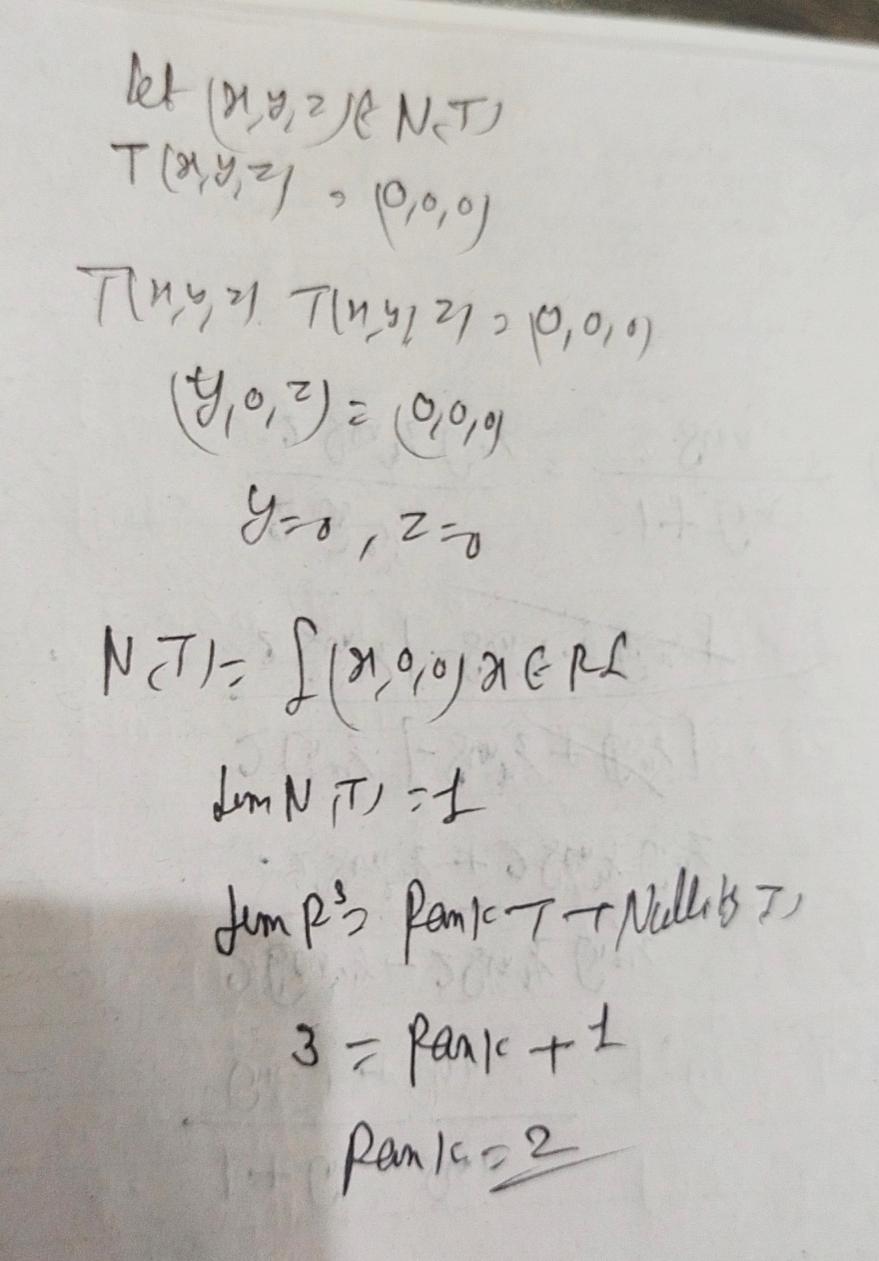 let (x,y,z) ∈ N(T)
T(x,y,z) = (0,0,0)
T(x,y,z) T(x,y,z) = (0,0,0)
(y,0,z) = (0,0,0)
y=0, z=0
N(T) = {(x,0,0) x ∈ R}
dim N(T) = 1
dim R³ = Rank T + Nullity T
3 = Rank + 1
Rank = 2